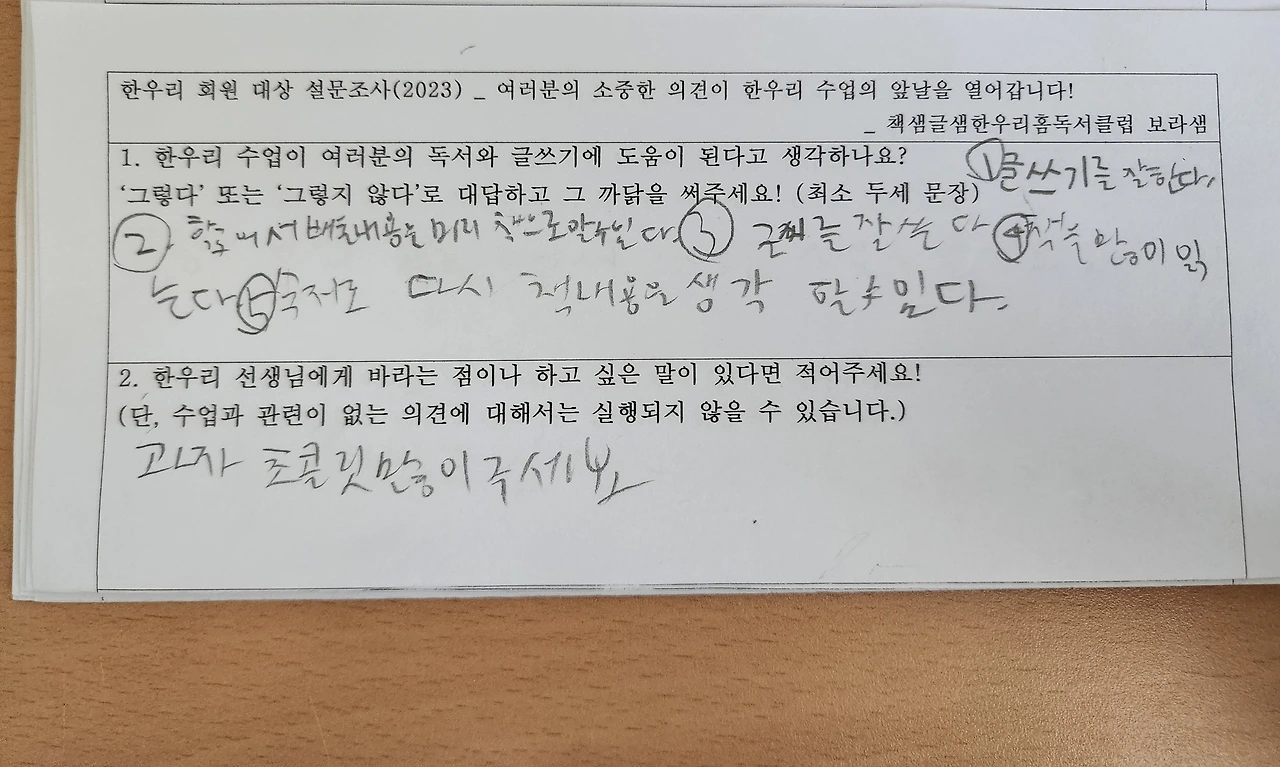 한우리 회원 대상 설문조사(2023) _ 여러분의 소중한 의견이 한우리 수업의 앞날을 열어갑니다!
_ 책샘글샘한우리홈독서클럽 보라샘
1. 한우리 수업이 여러분의 독서와 글쓰기에 도움이 된다고 생각하나요?
‘그렇다’ 또는 ‘그렇지 않다’로 대답하고 그 까닭을 써주세요! (최소 두세 문장)
① 글쓰기를 잘한다.
② 내용을 미리 책으로 알수있다. ③ 를 잘 쓴다 ④ 책을 많이 읽
는다 ⑤ 숙제로 다시 책내용을 생각 할수 있다.
2. 한우리 선생님에게 바라는 점이나 하고 싶은 말이 있다면 적어주세요!
(단, 수업과 관련이 없는 의견에 대해서는 실행되지 않을 수 있습니다.)
과자 초콜릿 많이 주세요